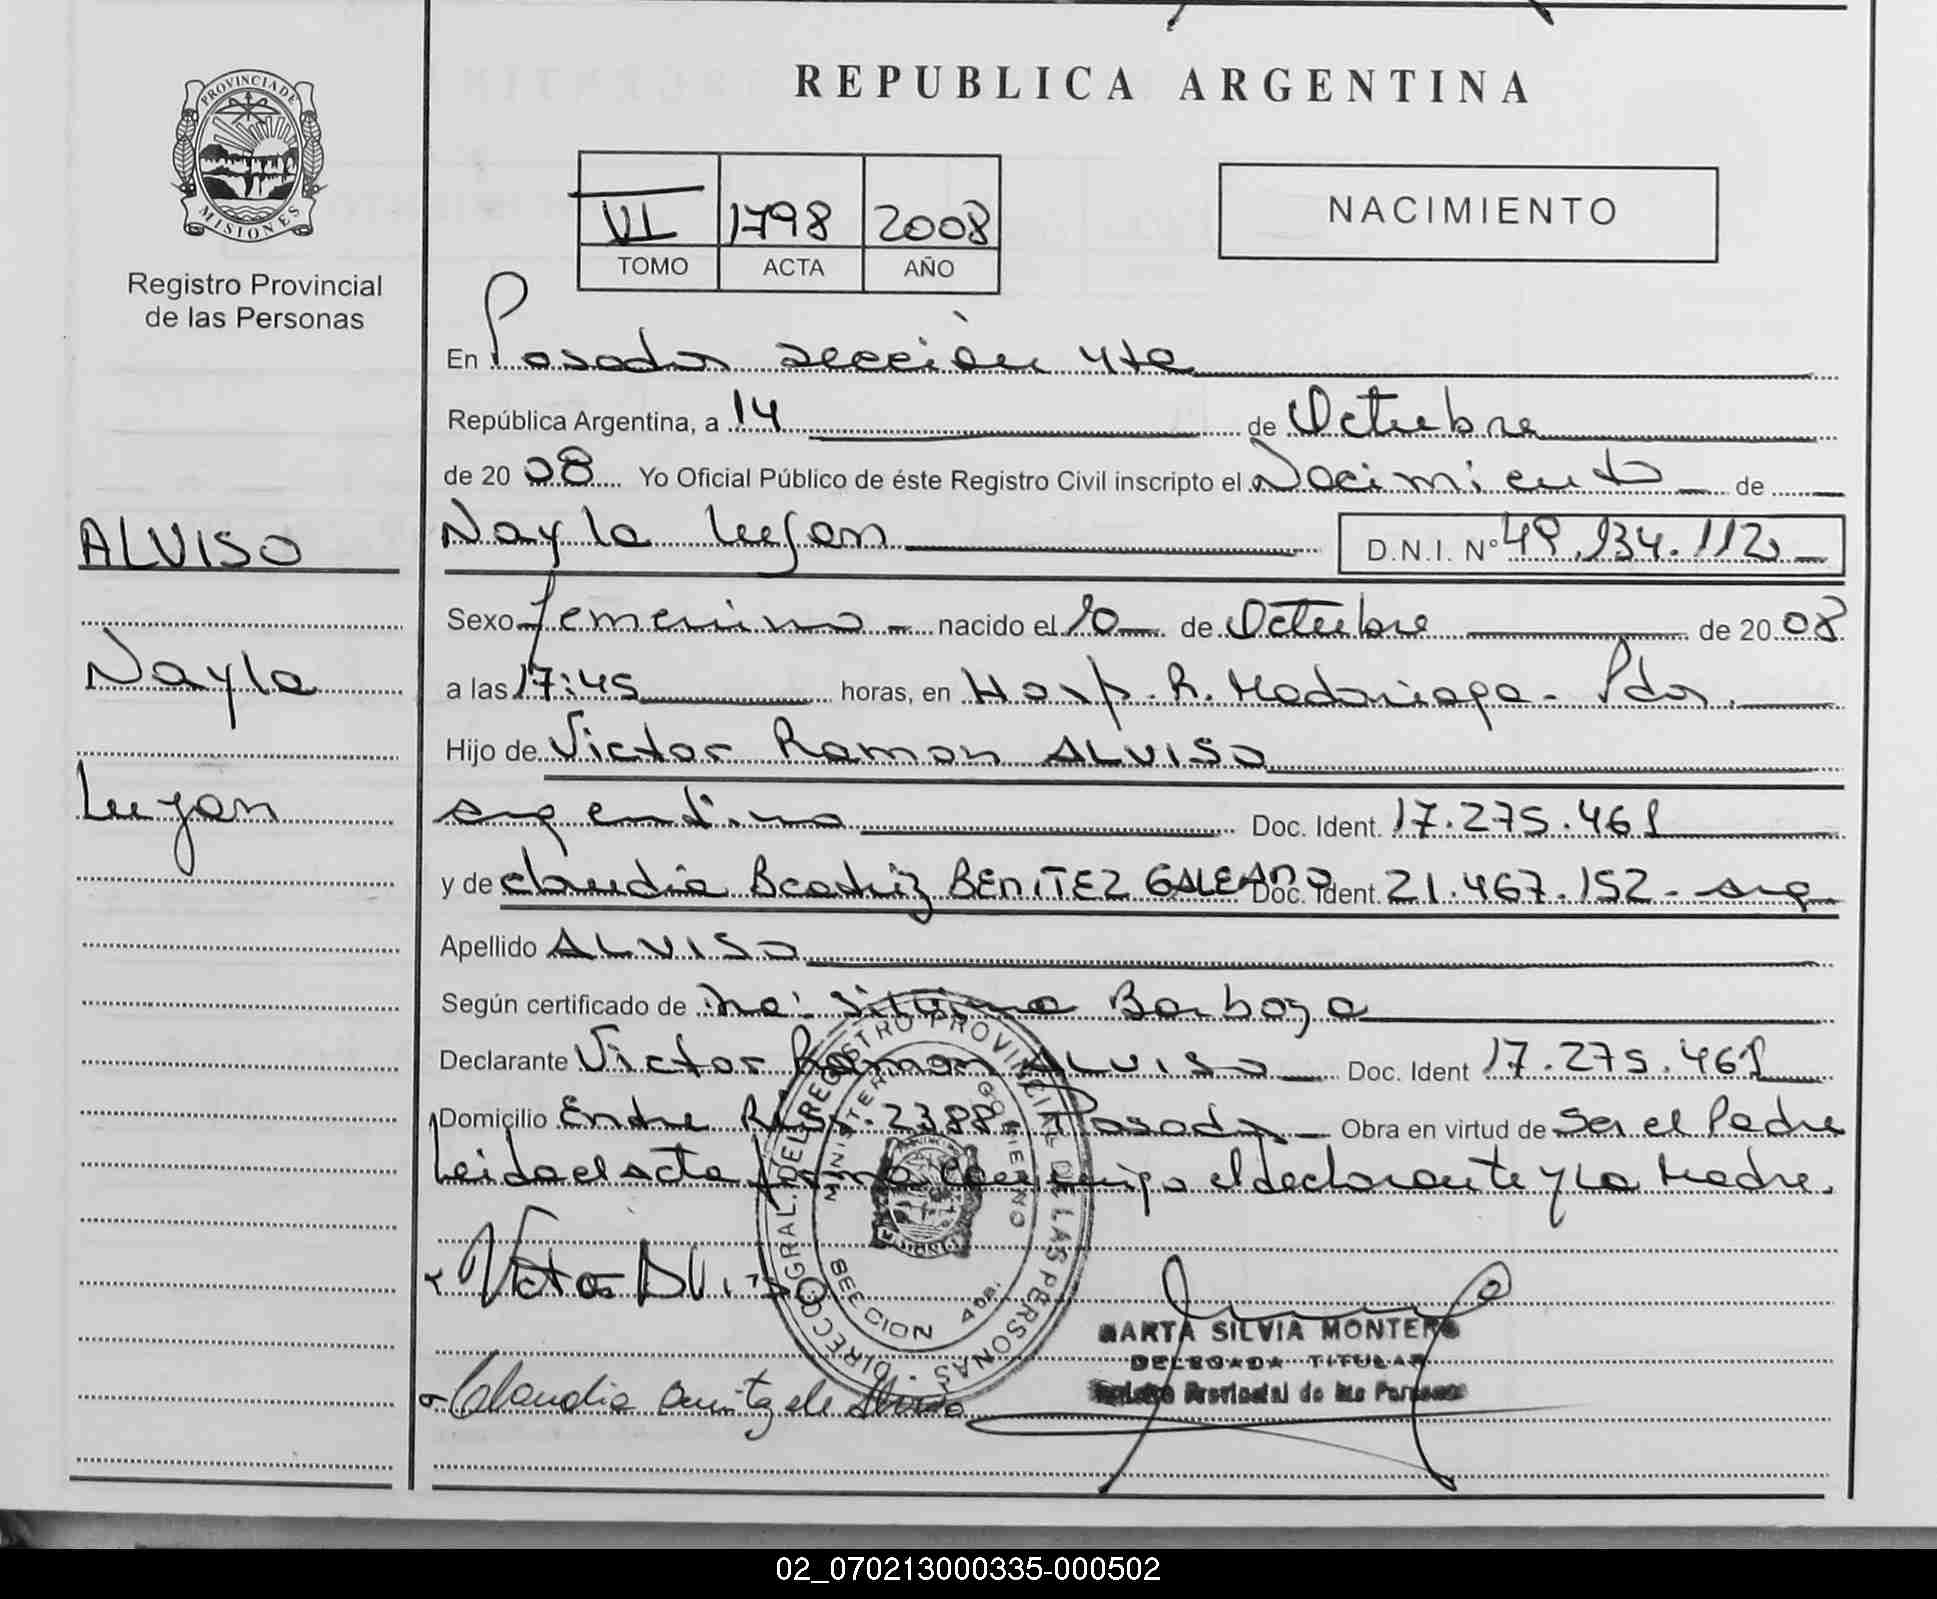 REPUBLICA ARGENTINA
PROVINCIA DE MISIONES
Registro Provincial
de las Personas
VI 1798 2008
TOMO ACTA AÑO
NACIMIENTO
En Posadas sección 4ta
República Argentina, a 14 de Octubre
de 2008 Yo Oficial Público de éste Registro Civil inscripto el Nacimiento de
ALVISO
Nayla
Lujan
Nayla Lujan D.N.I. Nº 49.134.112
Sexo femenino nacido el 10 de Octubre de 2008
a las 17:45 horas, en Hosp. R. Madariaga - Pdas.
Hijo de Victor Ramon ALVISO
argentino Doc. Ident. 17.275.461
y de Claudia Beatriz BENITEZ GALEANO Doc. Ident. 21.467.152 - arg
Apellido ALVISO
Según certificado de Silvina Barboza
Declarante Victor Ramon ALVISO Doc. Ident 17.275.461
Domicilio Entre Rios. 2388 Posadas Obra en virtud de Ser el Padre
Leida el acta firma conmigo el declarante y la Madre.
DIRECC. GRAL. DEL REGISTRO PROVINCIAL DE LAS PERSONAS
MINISTERIO GOBIERNO
SECCION 4ta.
Victor Alviso
MARTA SILVIA MONTERO
DELEGADA TITULAR
Registro Provincial de las Personas
Claudia Benitez de Alviso
02_070213000335-000502